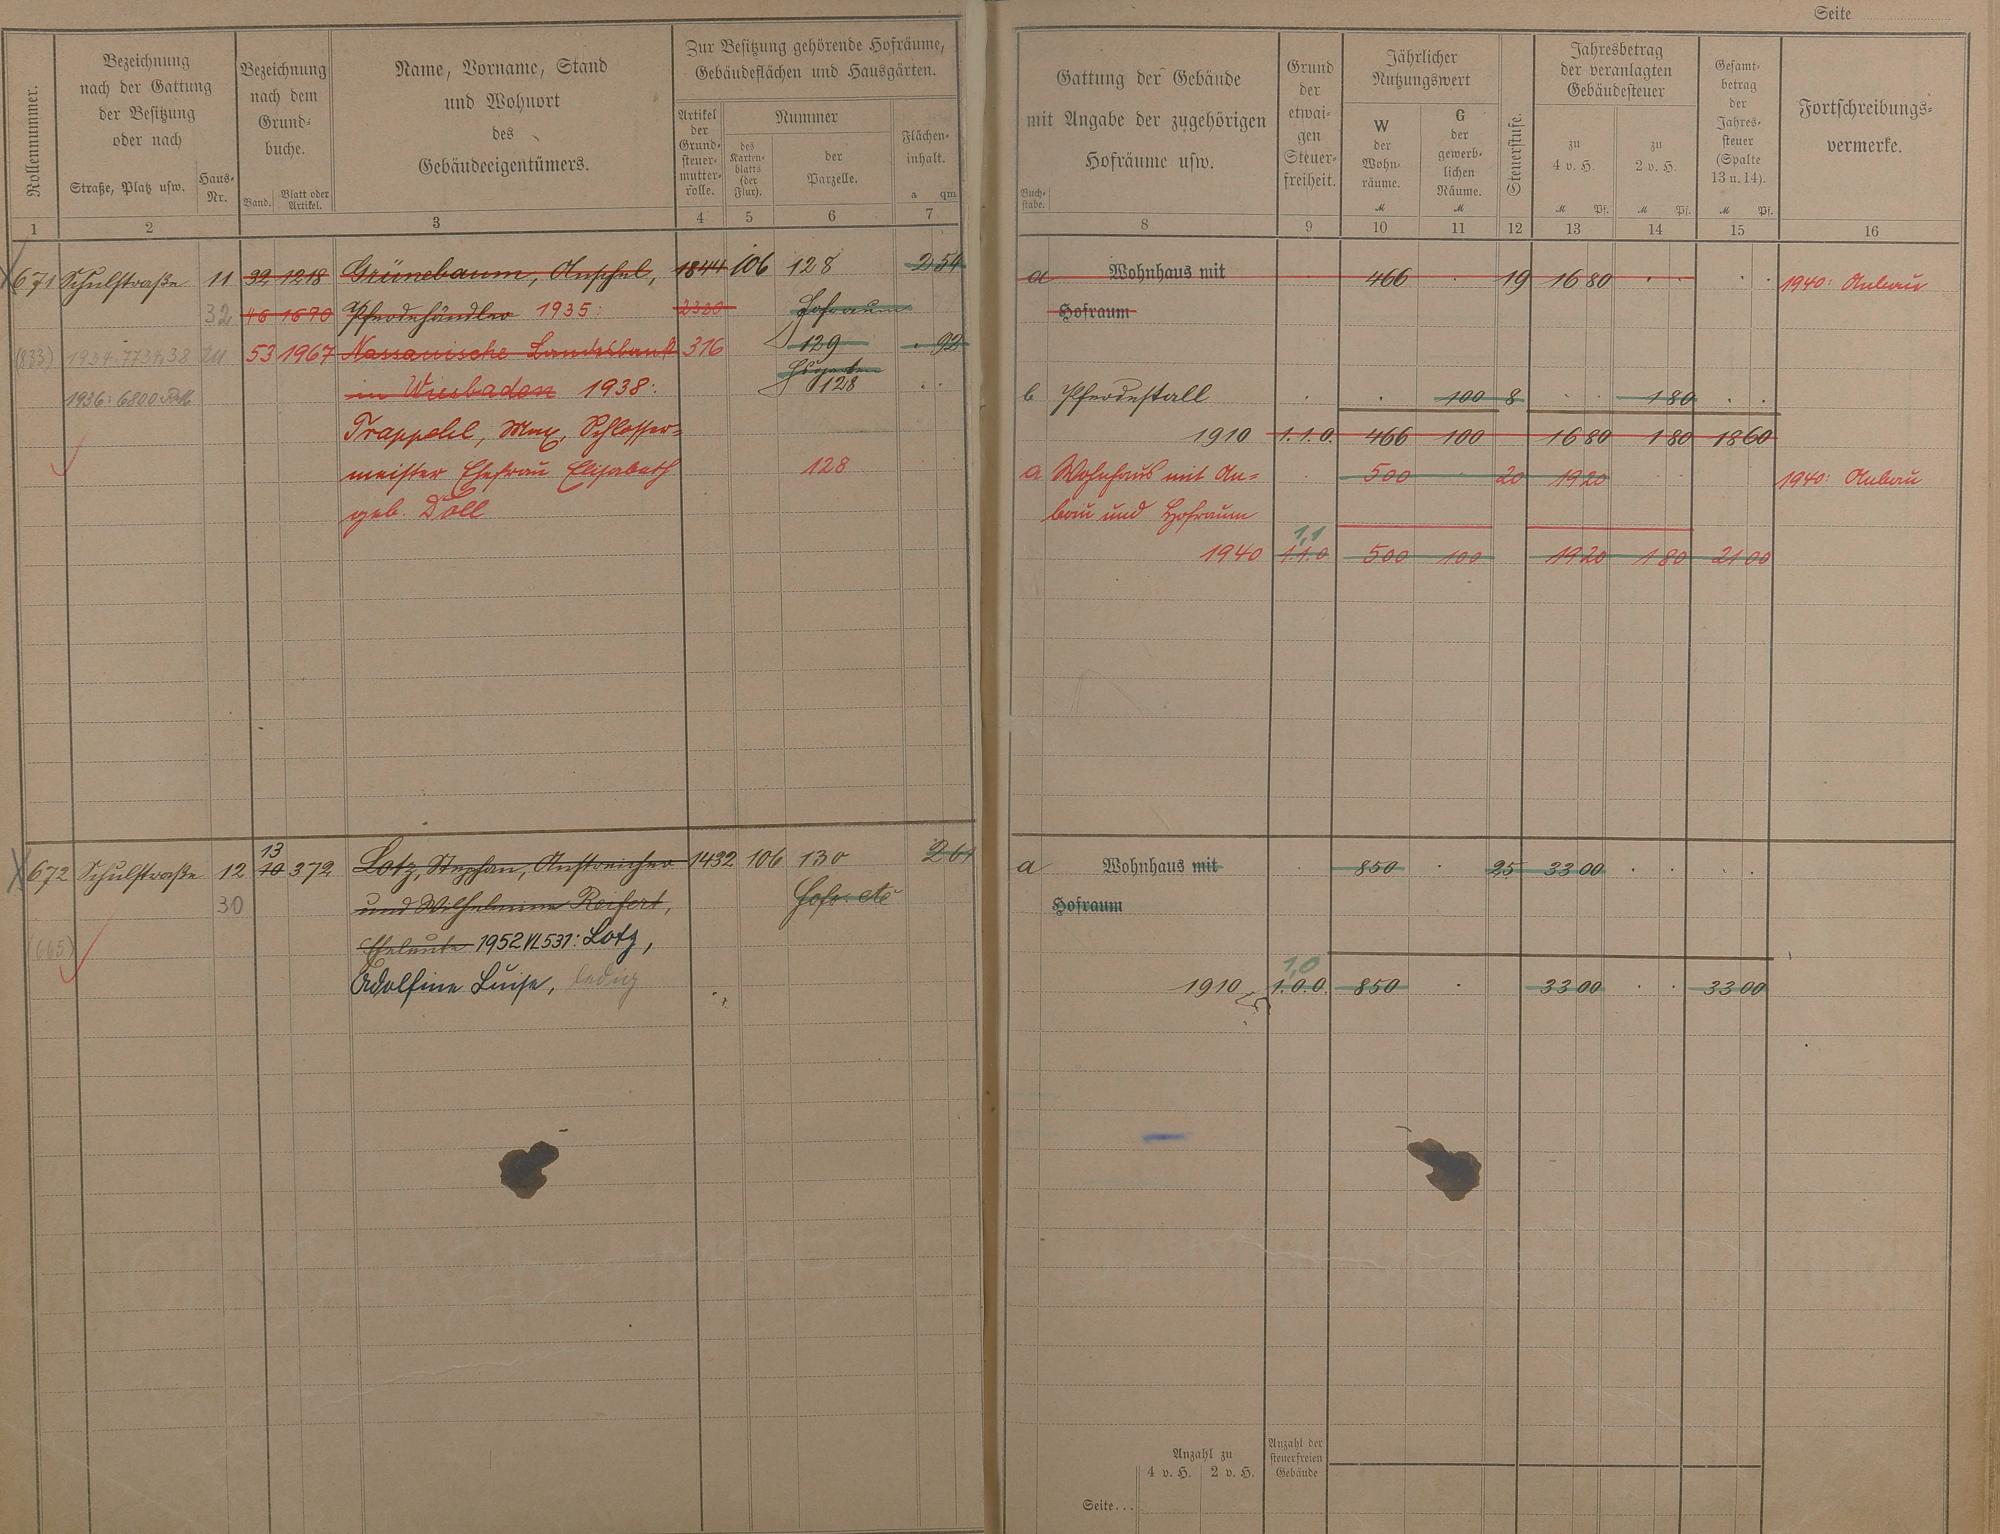 Seite
Rollennummer.
Bezeichnung
nach der Gattung
der Besitzung
oder nach
Straße, Platz usw.
Haus-
Nr.
Bezeichnung
nach dem
Grund-
buche.
Band.
Blatt oder
Artikel.
Name, Vorname, Stand
und Wohnort
des
Gebäudeeigentümers.
Zur Besitzung gehörende Hofräume,
Gebäudeflächen und Hausgärten.
Artikel
der
Grund-
steuer-
mutter-
rolle.
Nummer
des
Karten-
blatts
(der
Flur).
der
Parzelle.
Flächen-
inhalt.
a qm
1 2 3 4 5 6 7
Gattung der Gebäude
mit Angabe der zugehörigen
Hofräume usw.
Buch-
stabe.
Grund
der
etwai-
gen
Steuer-
freiheit.
Jährlicher
Nutzungswert
W
der
Wohn-
räume.
M
G
der
gewerb-
lichen
Räume.
M
Steuerstufe.
Jahresbetrag
der veranlagten
Gebäudesteuer
zu
4 v. H.
M Pf.
zu
2 v. H.
M Pf.
Gesamt-
betrag
der
Jahres-
steuer
(Spalte
13 u. 14).
M Pf.
Fortschreibungs-
vermerke.
8 9 10 11 12 13 14 15 16
671 Schulstraße 11 32 1218 Grünebaum, Anschel, 1844 106 128 2 54
32 46 1670 Pferdehändler 1935: 2320 Hofraum
(833) 53 1967 Nassauische Landesbank 316 129 92
1936: 6800 RM in Wiesbaden 1938: Hsgarten
128
Trappehl, Max, Schlosser-
meister Ehefrau Elisabeth 128
geb. Döll
a Wohnhaus mit 466 19 16 80 1940: Anbau
Hofraum
b Pferdestall 100 8 1 80
1910 1.1.0. 466 100 16 80 1 80 18 60
a Wohnhaus mit An- 500 20 19 20 1940: Anbau
bau und Hofraum
1,1
1940 1.1.0 500 100 19 20 1 80 21 00
13
672 Schulstraße 12 10 372 Lotz, Stephan, Anstreicher 1432 106 130 2 61
30 und Wilhelmine Reifert, Hofr. etc
(665) Eheleute 1952 VL 531: Lotz,
Adolfine Luise, ledig
a Wohnhaus mit 850 25 33 00
Hofraum
1,0
1910 1.0.0. 850 33 00 33 00
Anzahl zu
4 v. H. 2 v. H.
Anzahl der
steuerfreien
Gebäude
Seite...